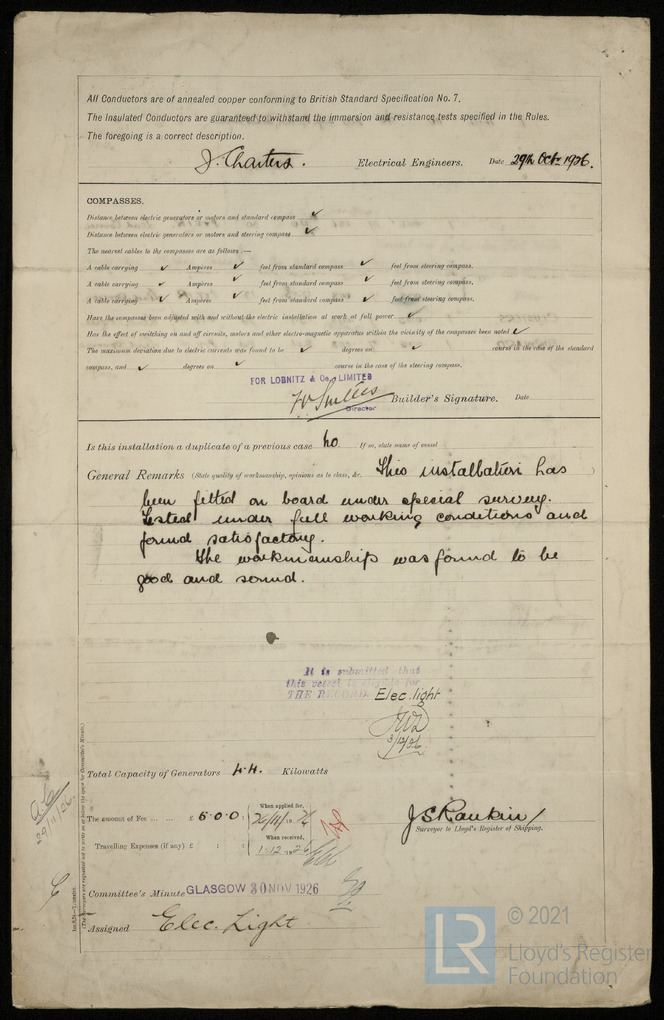 All Conductors are of annealed copper conforming to British Standard Specification No. 7.
The Insulated Conductors are guaranteed to withstand the immersion and resistance tests specified in the Rules.
The foregoing is a correct description.
J. Charters. Electrical Engineers. Date 29th Oct 1926.
COMPASSES.
Distance between electric generators or motors and standard compass ✓
Distance between electric generators or motors and steering compass ✓
The nearest cables to the compasses are as follows :—
A cable carrying ✓ Ampères ✓ feet from standard compass ✓ feet from steering compass.
A cable carrying ✓ Ampères ✓ feet from standard compass ✓ feet from steering compass.
A cable carrying ✓ Ampères ✓ feet from standard compass ✓ feet from steering compass.
Have the compasses been adjusted with and without the electric installation at work at full power ✓
Has the effect of switching on and off circuits, motors and other electro-magnetic apparatus within the vicinity of the compasses been noted ✓
The maximum deviation due to electric currents was found to be ✓ degrees on ✓ course in the case of the standard
compass, and ✓ degrees on ✓ course in the case of the steering compass.
FOR LOBNITZ & Co., LIMITED
Builder's Signature. Date
Director
Is this installation a duplicate of a previous case no If so, state name of vessel
General Remarks (State quality of workmanship, opinions as to class, &c. This installation has )
been fitted on board under special survey.
Tested under full working conditions and
found satisfactory.
The workmanship was found to be
good and sound.
It is submitted that
this vessel is eligible for
THE RECORD. Elec. light
3/12/26
Total Capacity of Generators 44. Kilowatts
29/11/26
The amount of Fee ... ... £ 5:0:0: When applied for,
Travelling Expenses (if any) £ : : When received,
1.12.1926
J S Rankin
Surveyor to Lloyd's Register of Shipping.
Committee's Minute GLASGOW 30 NOV 1926
Assigned Elec. Light
(The Surveyors are requested not to write on or below the space for Committee's Minute.)
LR © 2021
Lloyd's Register
Foundation